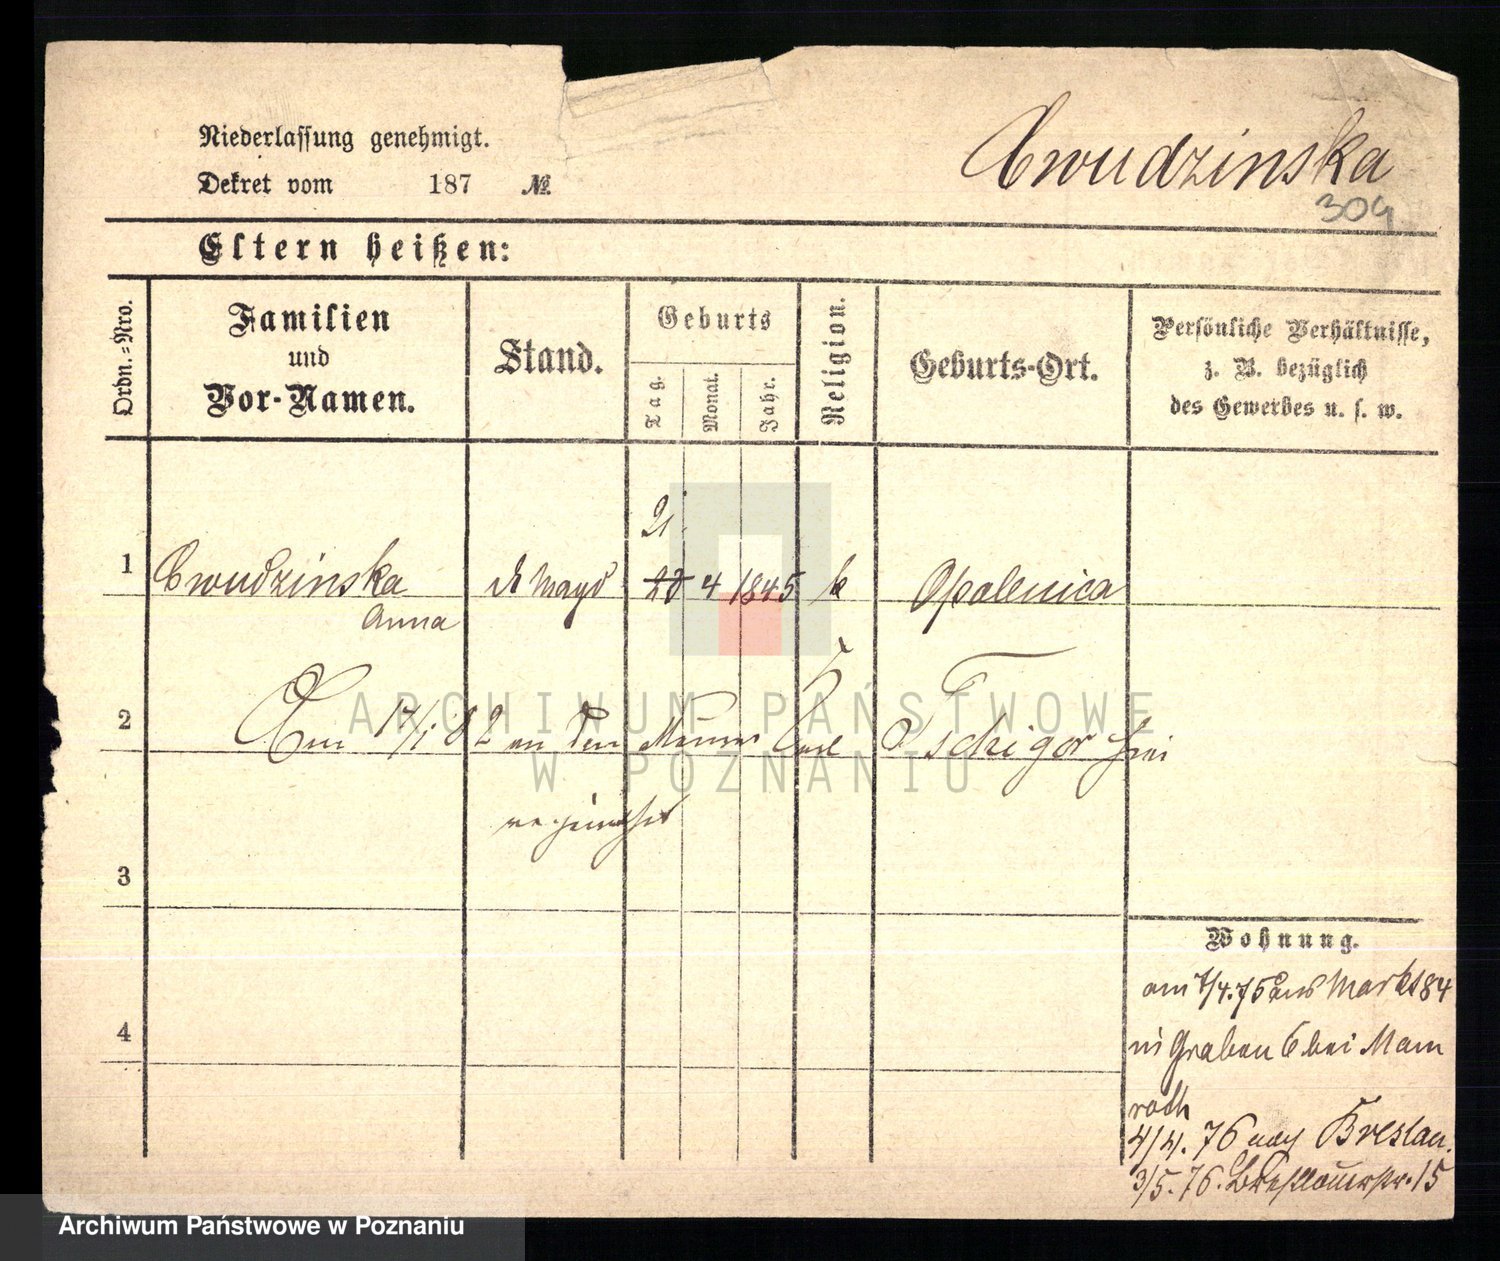 Niederlassung genehmigt.
Dekret vom 187 №
Cwudzinska
304
Eltern heißen:
Ordn.-Nro.
Familien
und
Vor-Namen.
Stand.
Geburts
Tag.
Monat.
Jahr.
Religion.
Geburts-Ort.
Persönliche Verhältnisse,
z. B. bezüglich
des Gewerbes u. s. w.
21.
1 Cwudzinska d Magd 28 4 1845 k Opalenica
Anna
2 Am 17/1 82 an den Maurer Carl Tschigor hier
verheirathet
3
4
Wohnung.
am 1/4.75 aus Markt 84
in Graben 6 bei Mam
roth
4/4. 76 nach Breslau.
3/5. 76. Breslauerstr. 15
ARCHIWUM PAŃSTWOWE
W POZNANIU
Archiwum Państwowe w Poznaniu